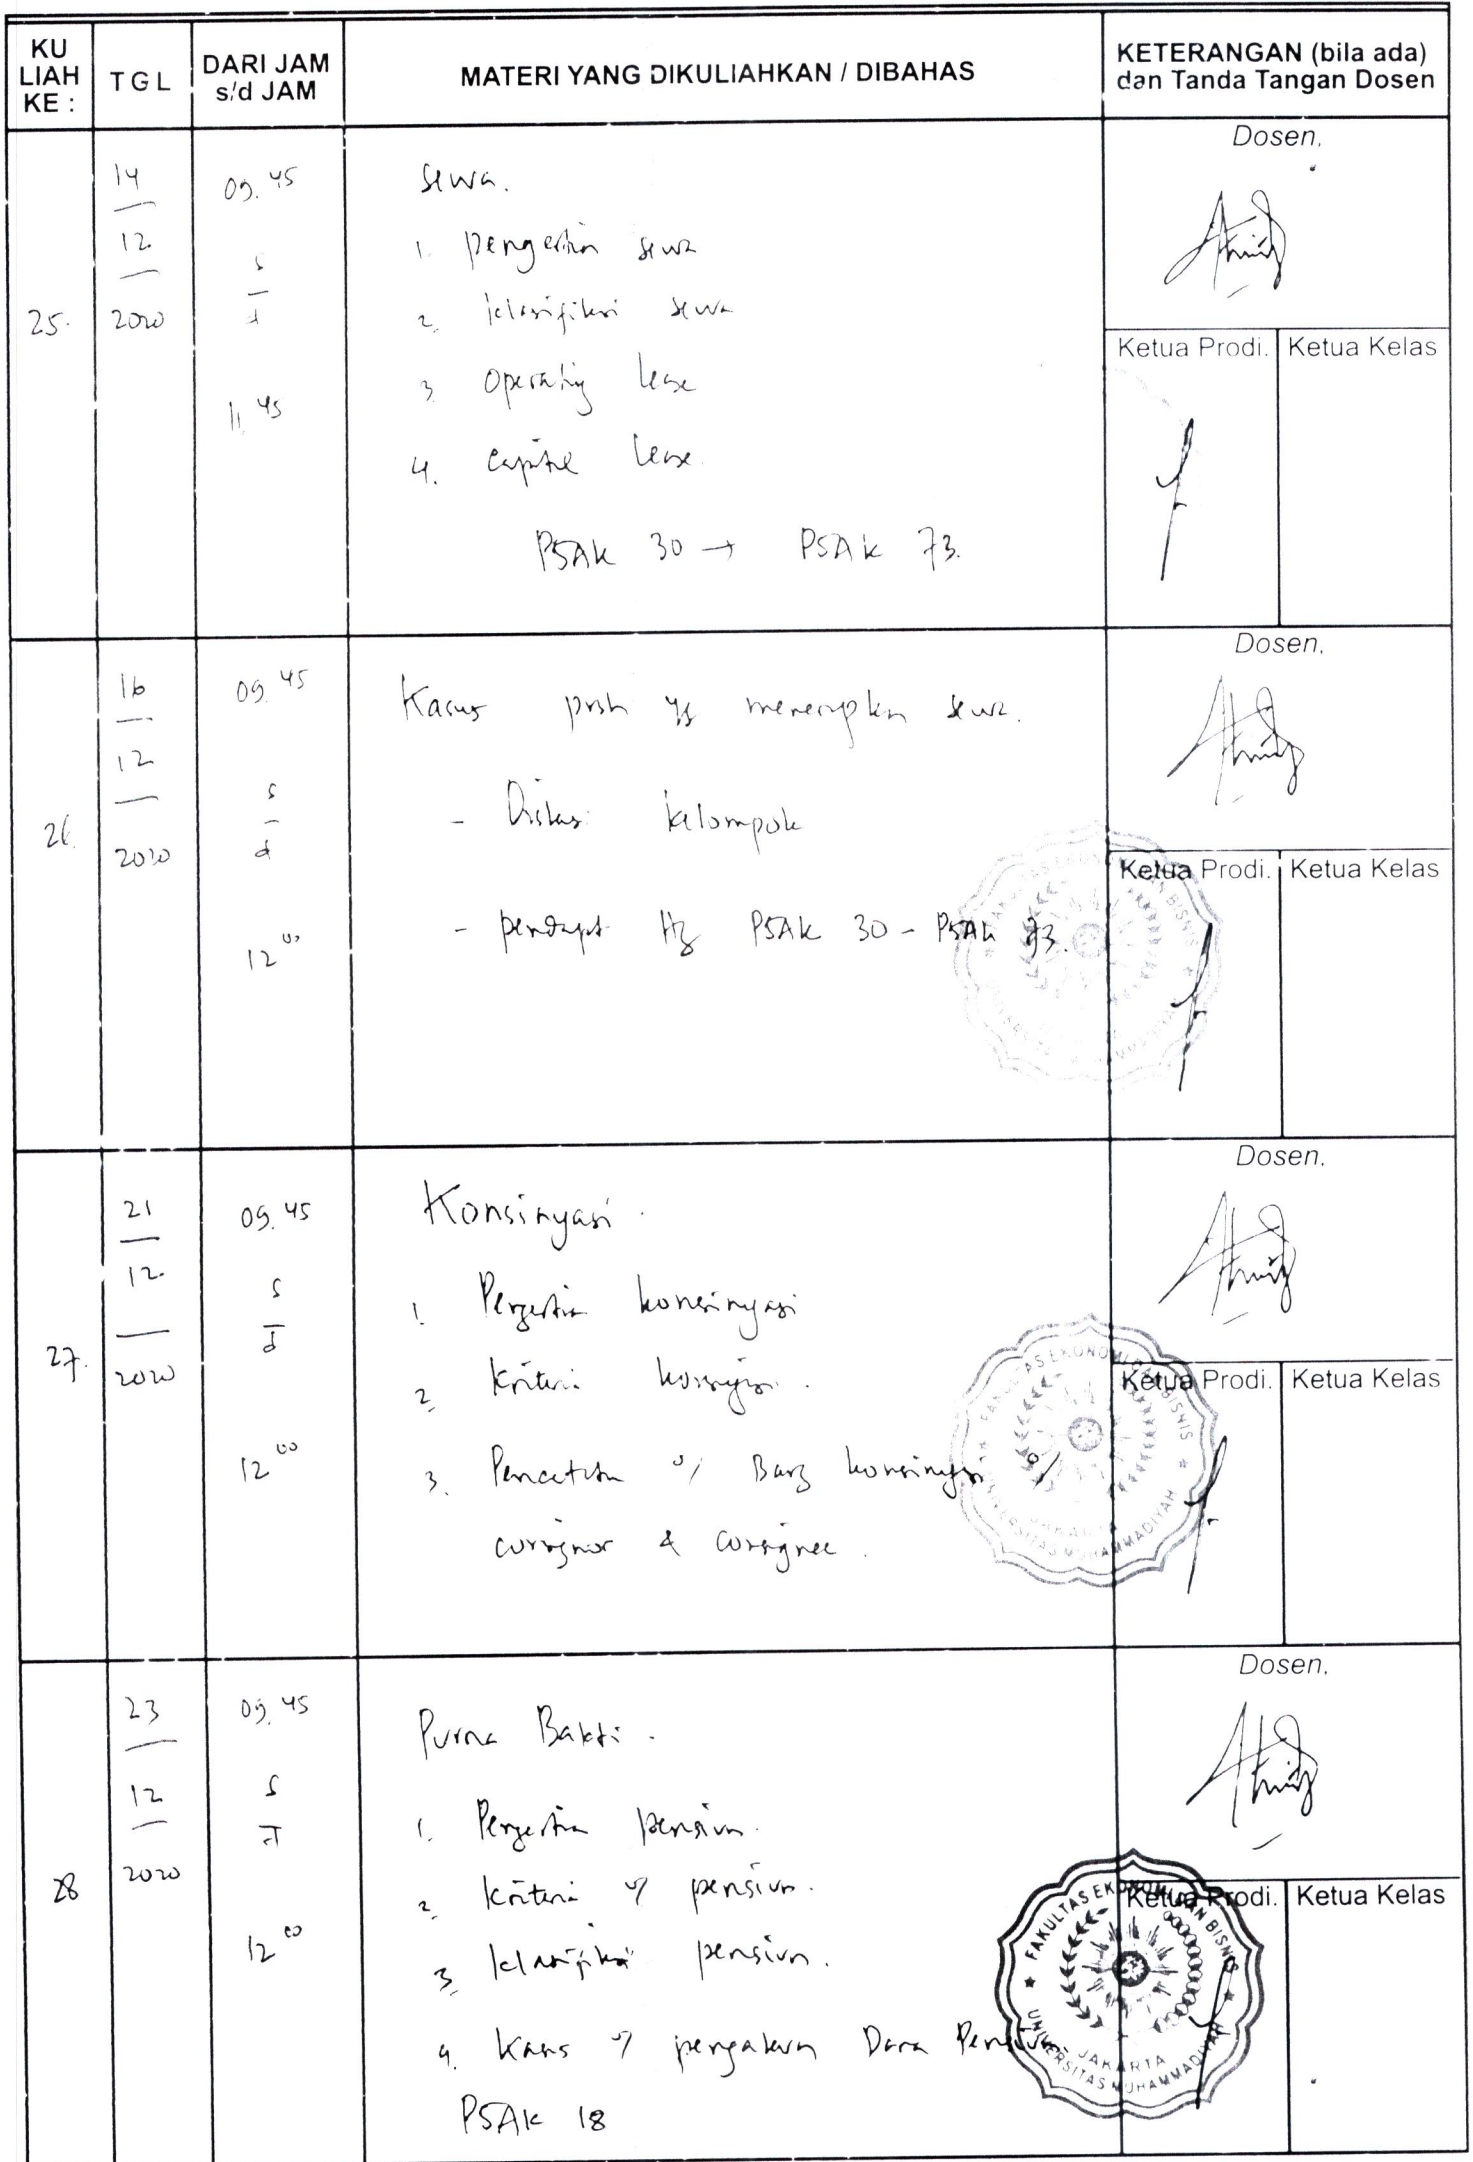 KU LIAH KE :
TGL
DARI JAM s/d JAM
MATERI YANG DIKULIAHKAN / DIBAHAS
KETERANGAN (bila ada) dan Tanda Tangan Dosen
25.
14
12
2020
09.45
s
d
11.45
Sewa.
1. pengertian sewa
2. klasifikasi sewa
3. Operating lease
4. Capital lease.
PSAK 30 → PSAK 73.
Dosen,
Ketua Prodi.
Ketua Kelas
26.
16
12
2020
09.45
s
d
12 00
Kasus prsh yg menerapkan sewa.
- Diskusi kelompok
- pendapat ttg PSAK 30 - PSAK 73.
Dosen,
Ketua Prodi.
Ketua Kelas
FAKULTAS EKONOMI DAN BISNIS
27.
21
12
2020
09.45
s
d
12 00
Konsinyasi.
1. Pengertian konsinyasi
2. Kriteria konsinyasi.
3. Pencatatan Barg konsinyasi
consignor & consignee.
Dosen,
Ketua Prodi.
Ketua Kelas
FAKULTAS EKONOMI DAN BISNIS
UNIVERSITAS MUHAMMADIYAH
JAKARTA
28
23
12
2020
09.45
s
d
12 00
Purna Bakti.
1. Pengertian pensiun.
2. Kriteria pensiun.
3. Klasifikasi pensiun.
4. Kasus pengakuan Dana Pensiun
PSAK 18
Dosen,
Ketua Prodi.
Ketua Kelas
FAKULTAS EKONOMI DAN BISNIS
UNIVERSITAS MUHAMMADIYAH
JAKARTA